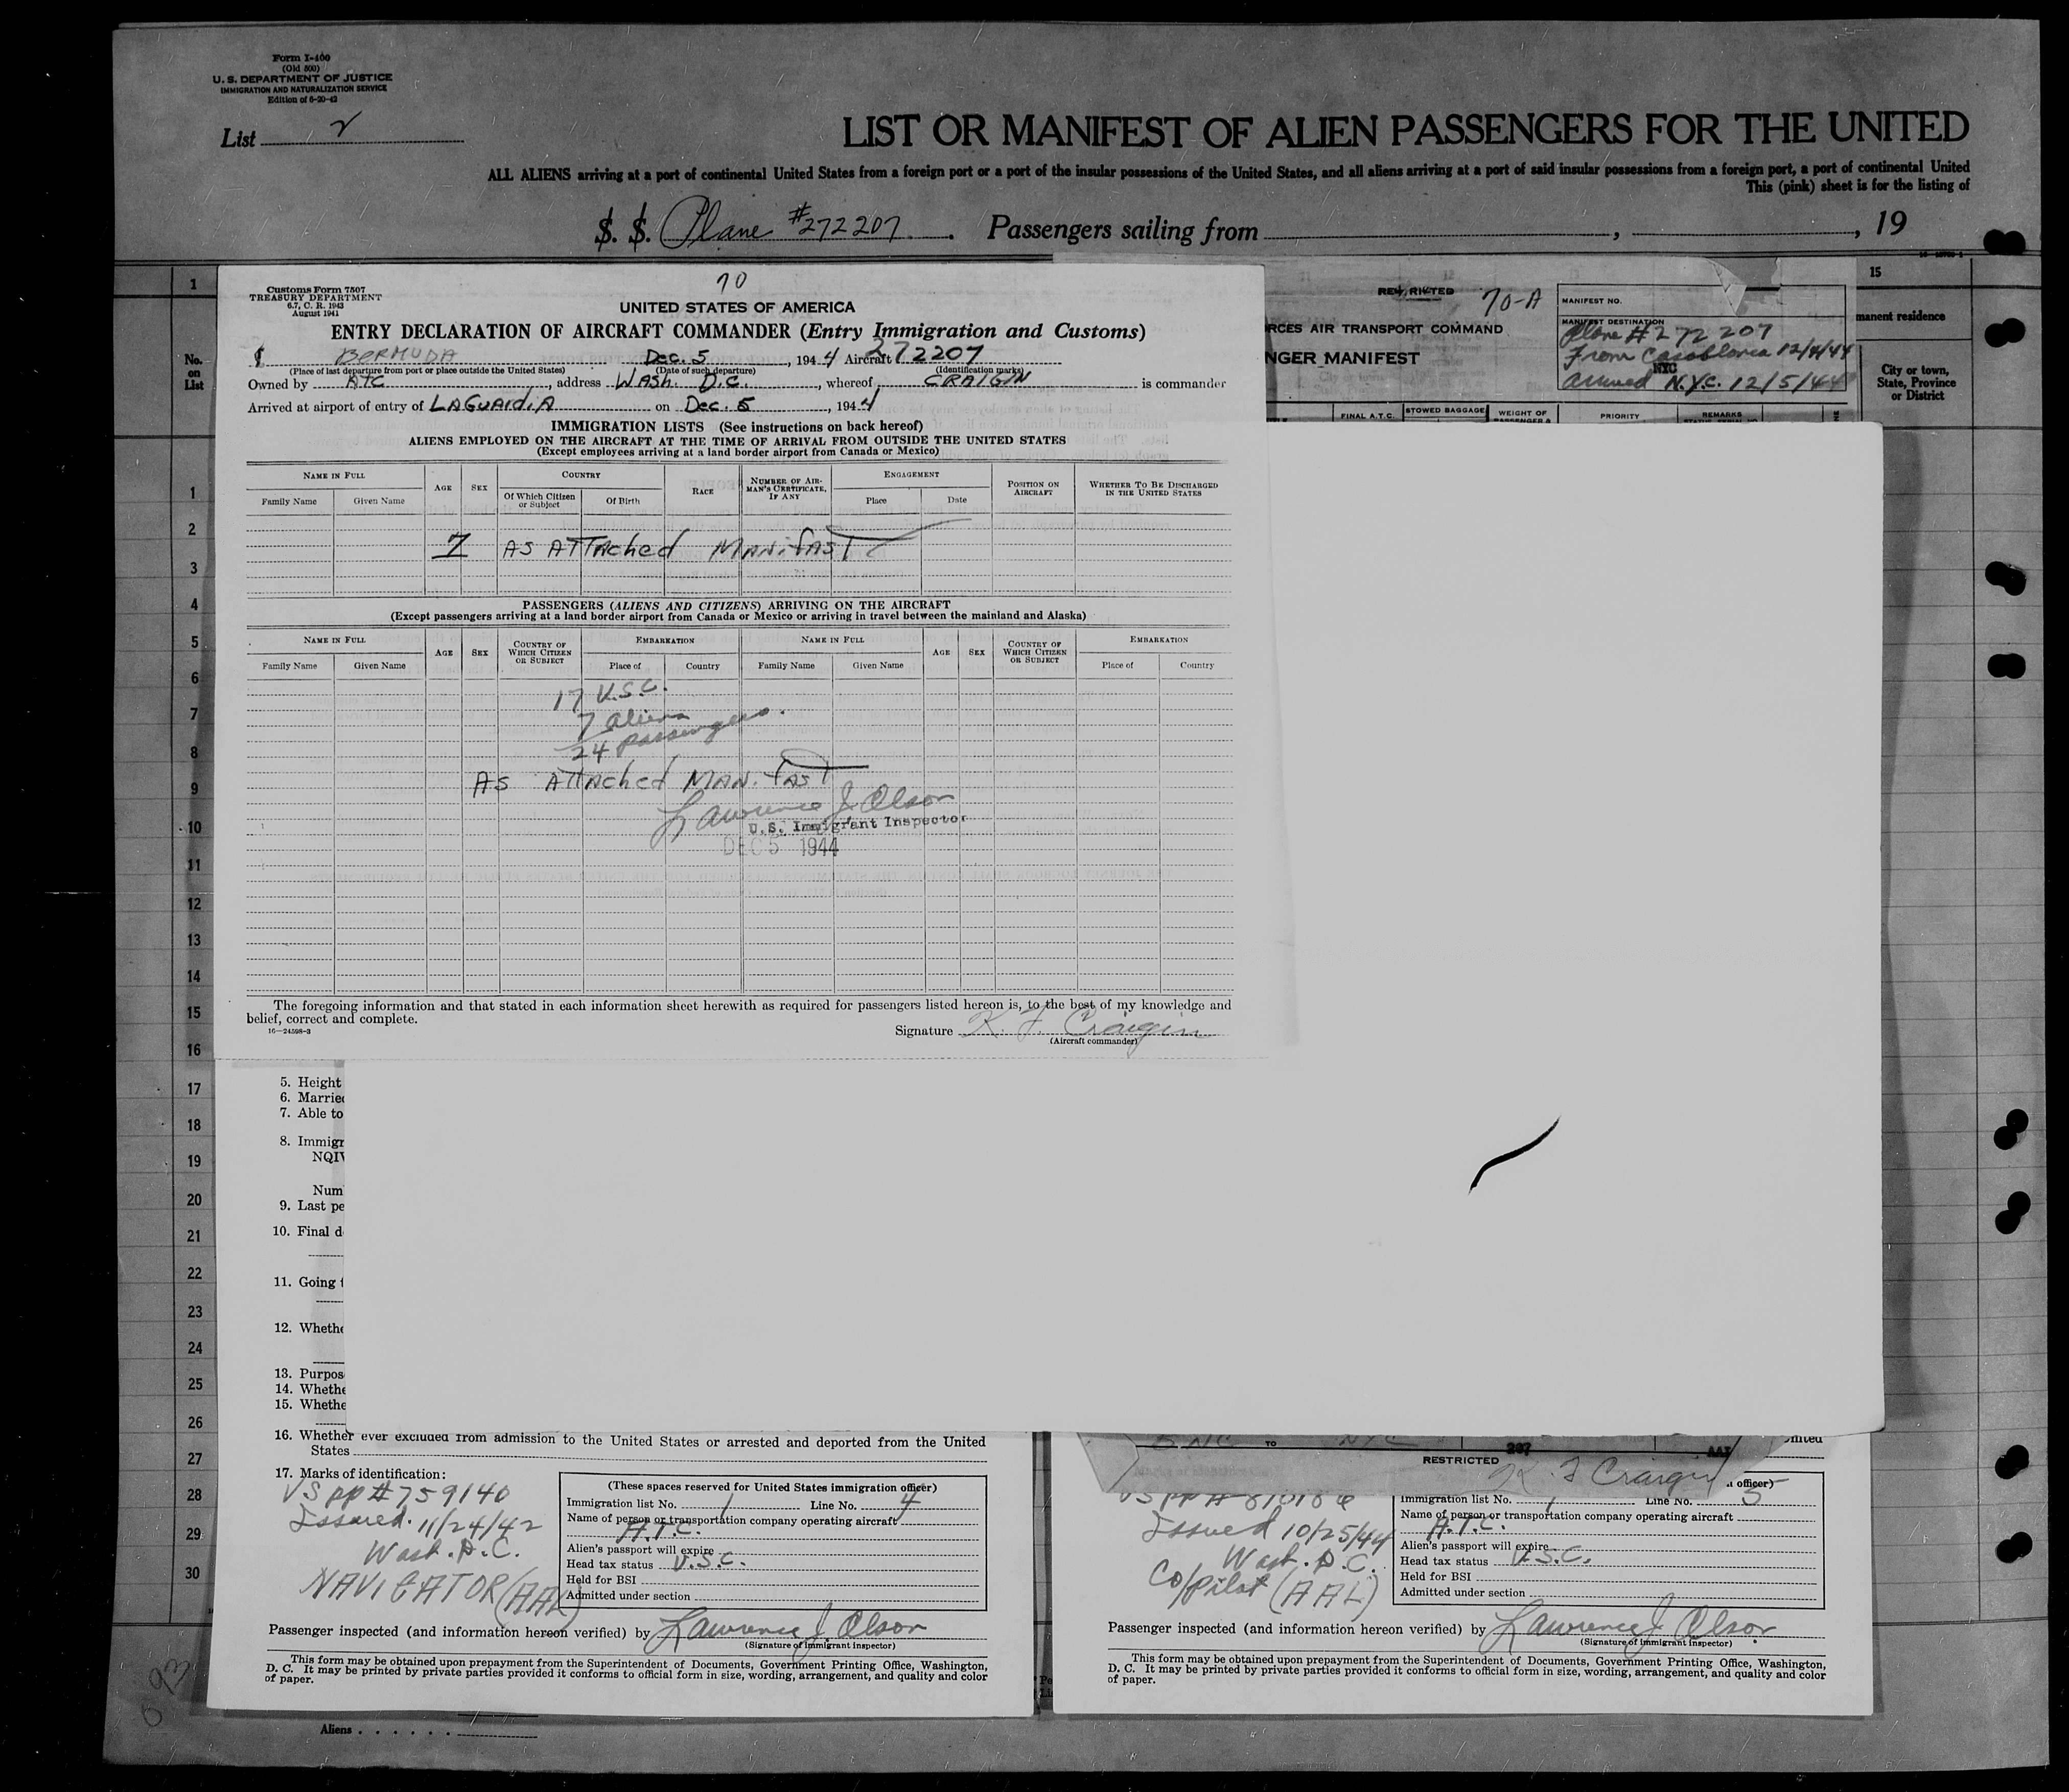 Form I-400
(Old 500)
U. S. DEPARTMENT OF JUSTICE
IMMIGRATION AND NATURALIZATION SERVICE
Edition of 6-20-42
List 2
LIST OR MANIFEST OF ALIEN PASSENGERS FOR THE UNITED
ALL ALIENS arriving at a port of continental United States from a foreign port or a port of the insular possessions of the United States, and all aliens arriving at a port of said insular possessions from a foreign port, a port of continental United
This (pink) sheet is for the listing of
S. S. Plane #272207. Passengers sailing from , , 19
1
15
No.
on
List
manent residence
City or town,
State, Province
or District
70
Customs Form 7507
TREASURY DEPARTMENT
6.7, C. R. 1943
August 1941
UNITED STATES OF AMERICA
ENTRY DECLARATION OF AIRCRAFT COMMANDER (Entry Immigration and Customs)
BERMUDA Dec. 5, 1944 Aircraft 272207
(Place of last departure from port or place outside the United States) (Date of such departure) (Identification marks)
Owned by ATC, address WASH. D.C., whereof CRAIGIN is commander
Arrived at airport of entry of LAGUARDIA on Dec. 5, 1944
IMMIGRATION LISTS (See instructions on back hereof)
ALIENS EMPLOYED ON THE AIRCRAFT AT THE TIME OF ARRIVAL FROM OUTSIDE THE UNITED STATES
(Except employees arriving at a land border airport from Canada or Mexico)
NAME IN FULL AGE SEX COUNTRY RACE NUMBER OF AIR-MAN'S CERTIFICATE, IF ANY ENGAGEMENT POSITION ON AIRCRAFT WHETHER TO BE DISCHARGED IN THE UNITED STATES
Family Name Given Name Of Which Citizen or Subject Of Birth Place Date
7 AS ATTAched MANifAST
PASSENGERS (ALIENS AND CITIZENS) ARRIVING ON THE AIRCRAFT
(Except passengers arriving at a land border airport from Canada or Mexico or arriving in travel between the mainland and Alaska)
NAME IN FULL AGE SEX COUNTRY OF WHICH CITIZEN OR SUBJECT EMBARKATION NAME IN FULL AGE SEX COUNTRY OF WHICH CITIZEN OR SUBJECT EMBARKATION
Family Name Given Name Place of Country Family Name Given Name Place of Country
17 U.S.C.
7 aliens
24 passengers.
AS ATTAched MANifAST
Lawrence J. Olson
U.S. Immigrant Inspector
DEC 5 1944
The foregoing information and that stated in each information sheet herewith as required for passengers listed hereon is, to the best of my knowledge and
belief, correct and complete.
16—24598-3
Signature K. F. Craigin
(Aircraft commander)
RESTRICTED
70-A
RCES AIR TRANSPORT COMMAND
NGER MANIFEST
MANIFEST NO.
MANIFEST DESTINATION
Plane #272207
From Casablanca 12/4/44
NYC
arrived N.Y.C. 12/5/44
FINAL A.T.C. STOWED BAGGAGE WEIGHT OF PRIORITY REMARKS
1
2
3
4
5
6
7
8
9
10
11
12
13
14
15
16
17
18
19
20
21
22
23
24
25
26
27
28
29
30
5. Height
6. Married
7. Able to
8. Immigr
NQIV
Num
9. Last pe
10. Final d
11. Going
12. Whethe
13. Purpos
14. Whethe
15. Whethe
16. Whether ever excluded from admission to the United States or arrested and deported from the United
States
17. Marks of identification:
US pp #759140
Issued 11/24/42
Wash. D.C.
NAVIGATOR (AAL)
(These spaces reserved for United States immigration officer)
Immigration list No. 1 Line No. 4
Name of person or transportation company operating aircraft
A.T.C.
Alien's passport will expire
Head tax status U.S.C.
Held for BSI
Admitted under section
Passenger inspected (and information hereon verified) by Lawrence J. Olson
(Signature of immigrant inspector)
This form may be obtained upon prepayment from the Superintendent of Documents, Government Printing Office, Washington,
D. C. It may be printed by private parties provided it conforms to official form in size, wording, arrangement, and quality and color
of paper.
TO NYC
RESTRICTED
K. F Craigin
officer)
Issued 10/25/44
Wash. D.C.
Co/pilot (AAL)
Immigration list No. 1 Line No. 5
Name of person or transportation company operating aircraft
A.T.C.
Alien's passport will expire
Head tax status U.S.C.
Held for BSI
Admitted under section
Passenger inspected (and information hereon verified) by Lawrence J. Olson
(Signature of immigrant inspector)
This form may be obtained upon prepayment from the Superintendent of Documents, Government Printing Office, Washington,
D. C. It may be printed by private parties provided it conforms to official form in size, wording, arrangement, and quality and color
of paper.
693
Aliens